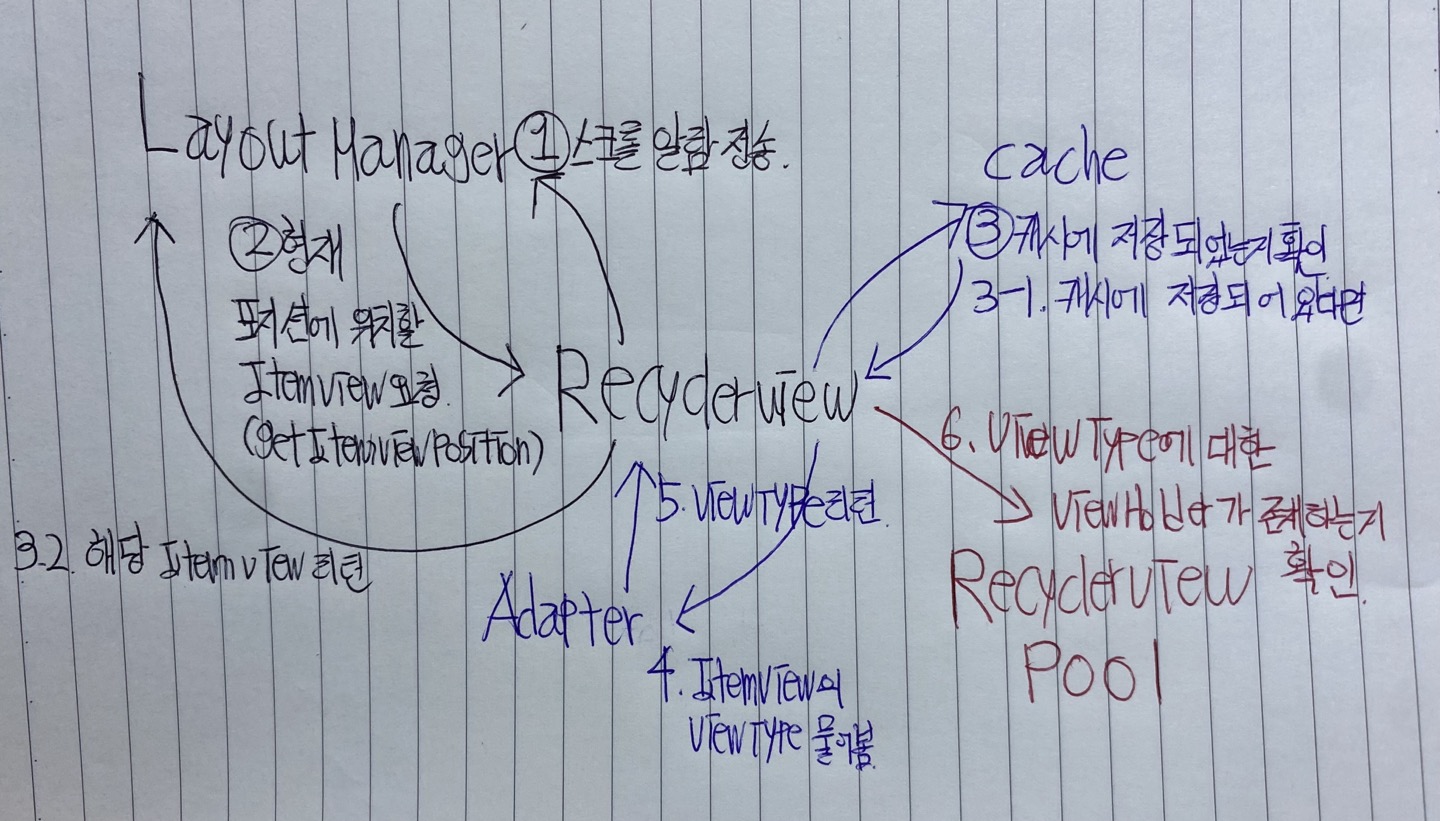 Layout Manager ① 스크롤 알람 전송.
② 현재
포지션에 위치할
Itemview 요청.
(get Itemview Position)
cache
③ 캐시에 저장되었는지 확인
3-1. 캐시에 저장되어 있다면
Recyclerview
3.2. 해당 Itemview 리턴
5. viewType 리턴.
Adapter
4. Itemview의
viewType 물어봄.
6. viewType에 대한
viewHolder가 존재하는지
확인.
Recyclerview
Pool